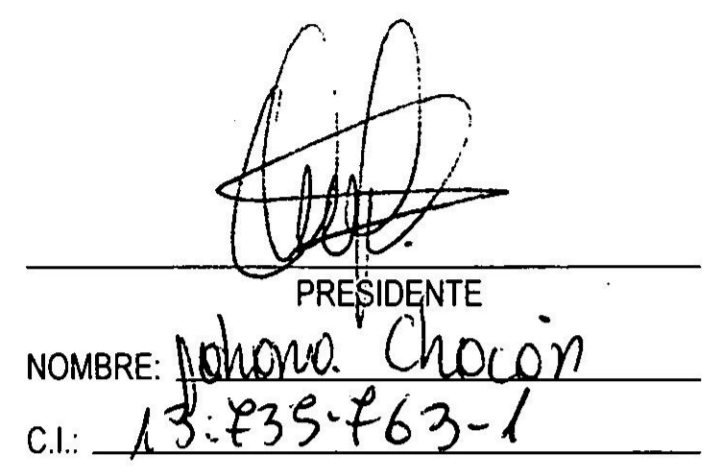 PRESIDENTE
NOMBRE: Johana. Chacón
C.I.: 13.735.763-1